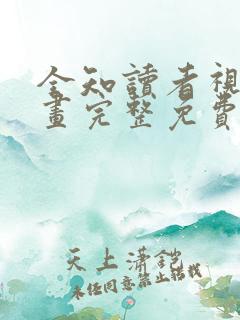 全知讀者視
畫完整免費
天上瀟鎧
未經同意禁止轉載